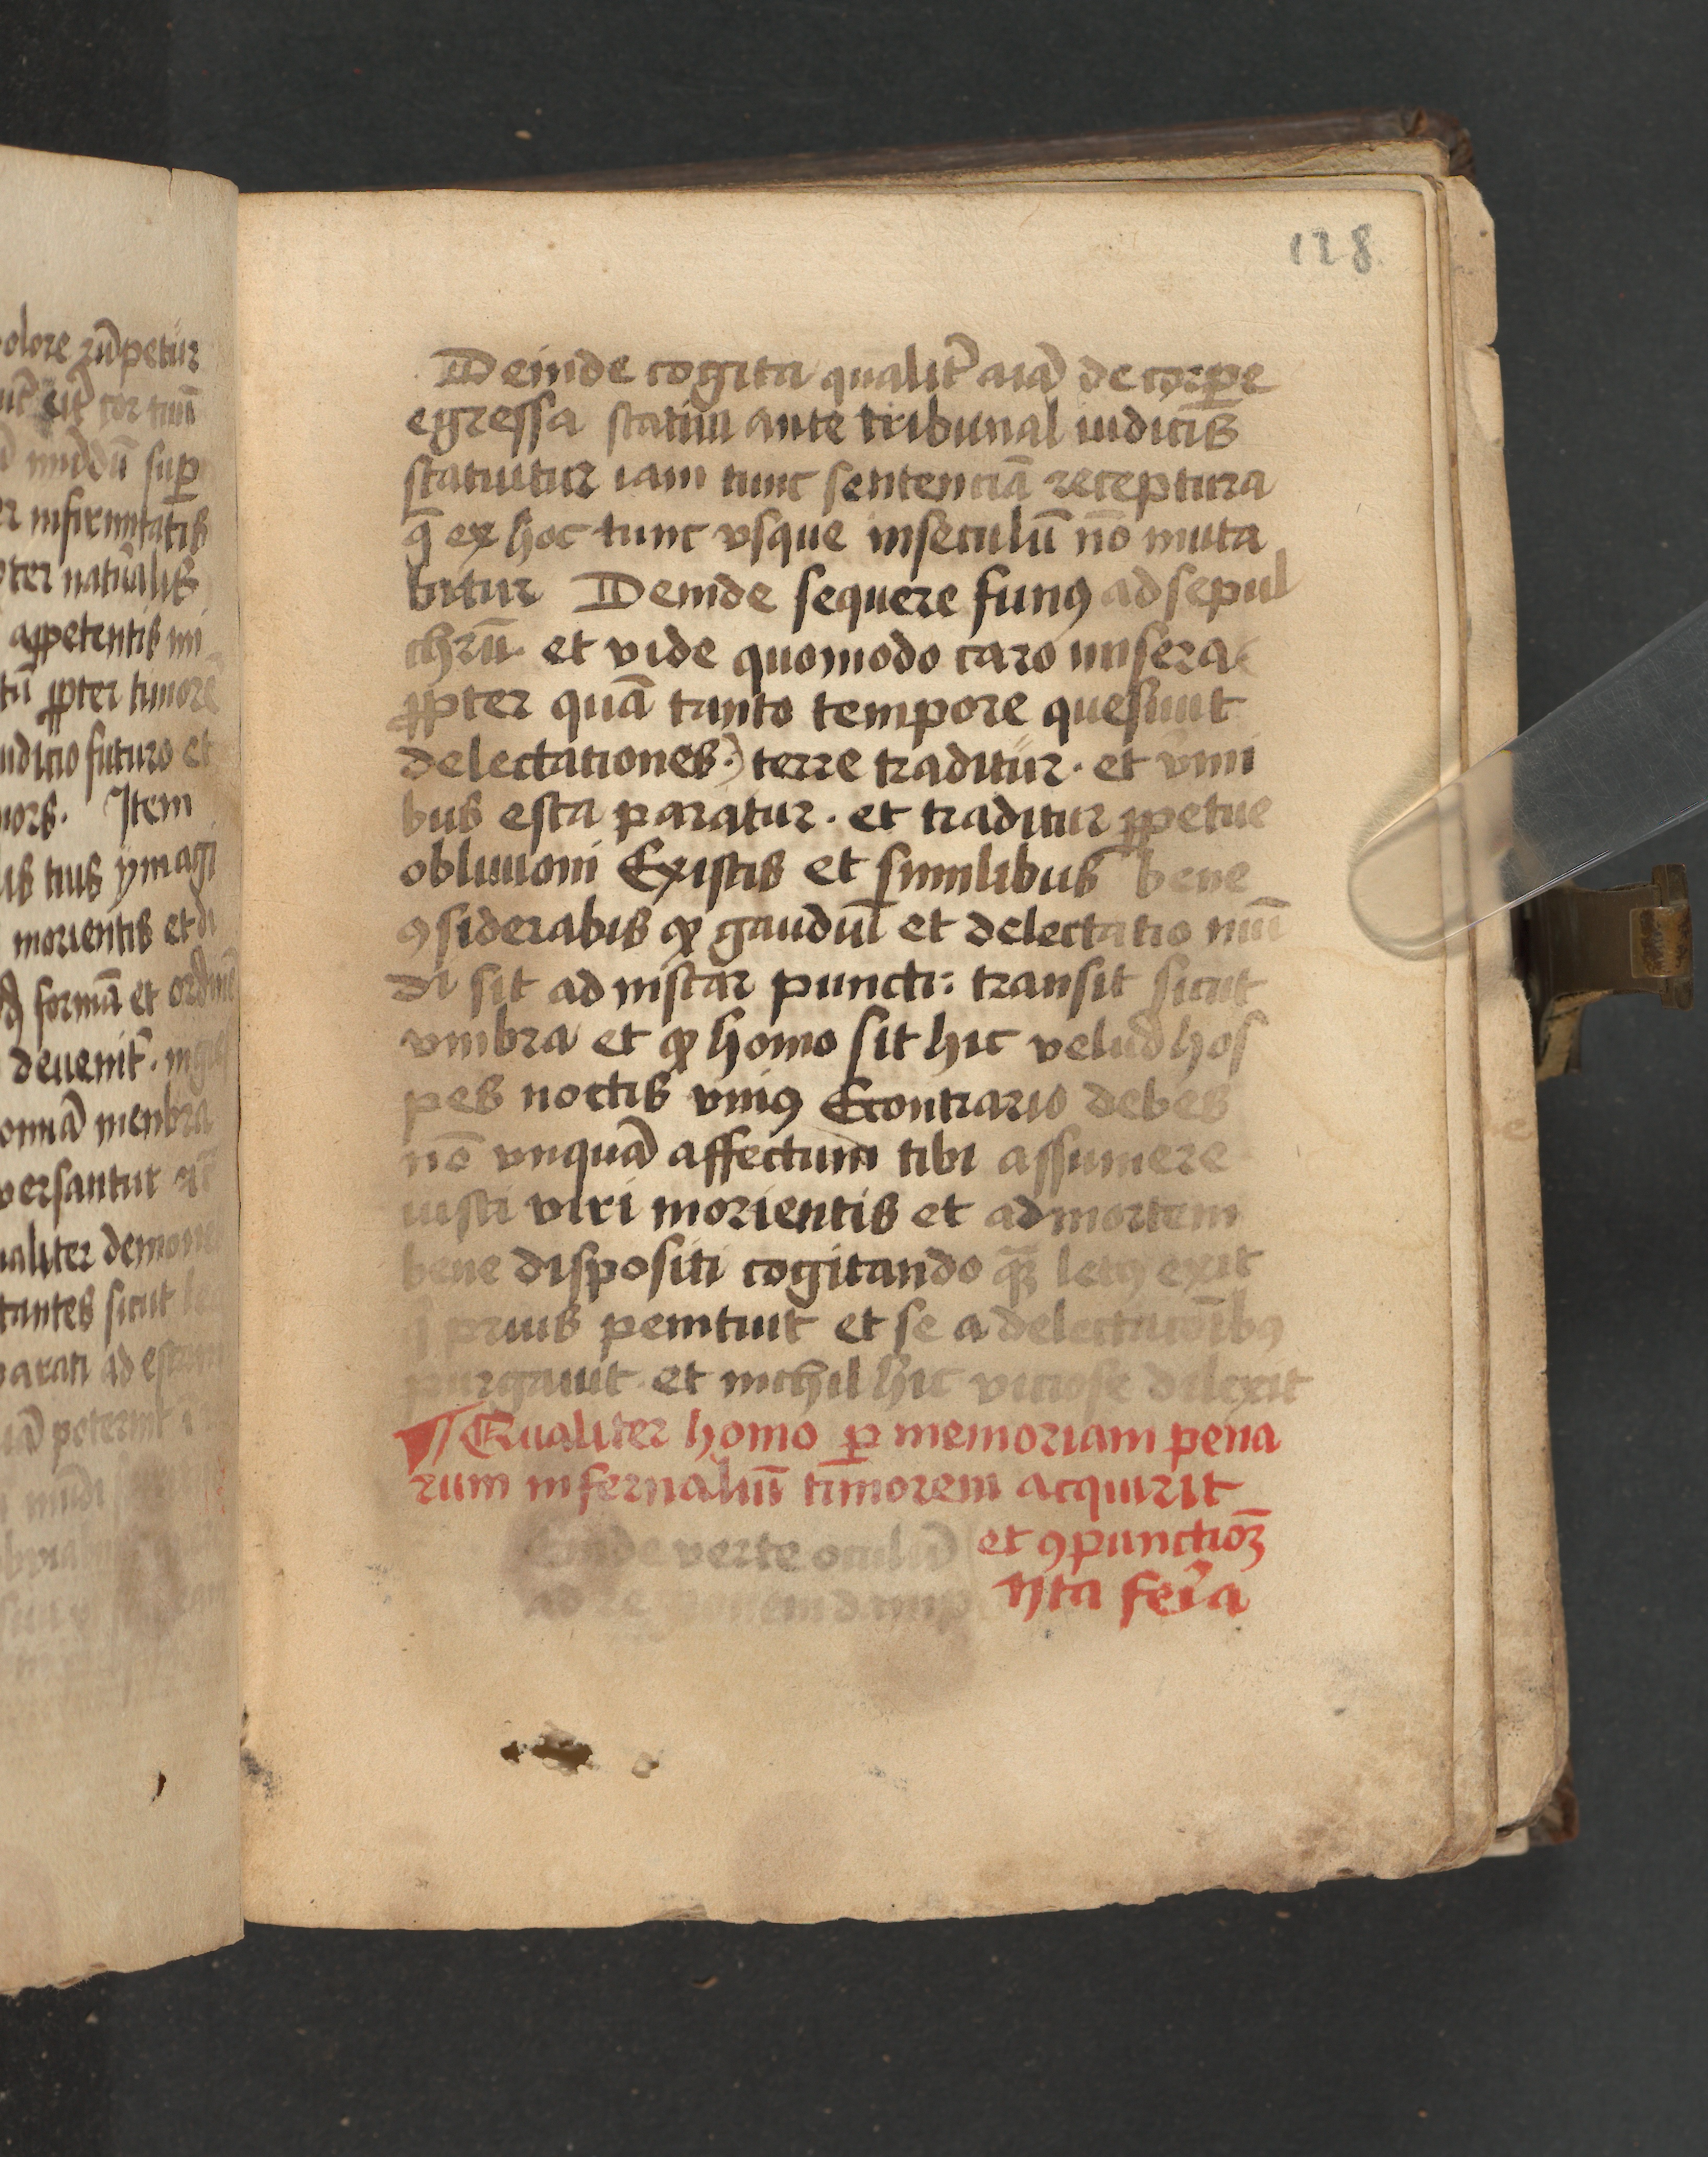 olore rūpetur
cor tuū
mūdū sup̄
infirmitatis
naturalis
appetentis mi
ꝓpter timorē
iudicio futuro et
mors. Item
tuis ymagi
morientis et di
formā et ordinē
deuenit̄.
menbra
versantur
qualiter demones
sicut
parati ad
poterint
128
Deinde cogita qualit̄ aīa de corꝑe
egressa statim ante tribunal iudicis
statuitur iam tunc sentenciā receptura
q̄ ex hoc tunc vsque inseculū nō muta
bitur Deinde sequere funꝯ ad sepul
chrū. et vide quomodo caro misera
ꝓpter quā tanto tempore quesiuit
delectationes.) terre traditur. et v̄mi
bus esca paratur. et traditur ꝑpetue
obliuioni Ex istis et similibus bene
ꝯsiderabis ꝙ gaudiū et delectatio mū
di sit ad instar puncti: transit sicut
vmbra et ꝙ homo sit hic velud hos
pes noctis vniꝯ Econtrario debes
nō vnquā affectum tibi assumere
iusti viri morientis et ad mortem
bene dispositi cogitando letꝯ exit
q̄ prius penituit et se a delectatōibꝯ
purgauit. et nichil hic viciose dilexit
¶ Qualiter homo ꝑ memoriam pena
rum infernaliū timorem acquirit
inde verte oculū et ꝯpunctiōꝫ
ad 4ta fer̄a